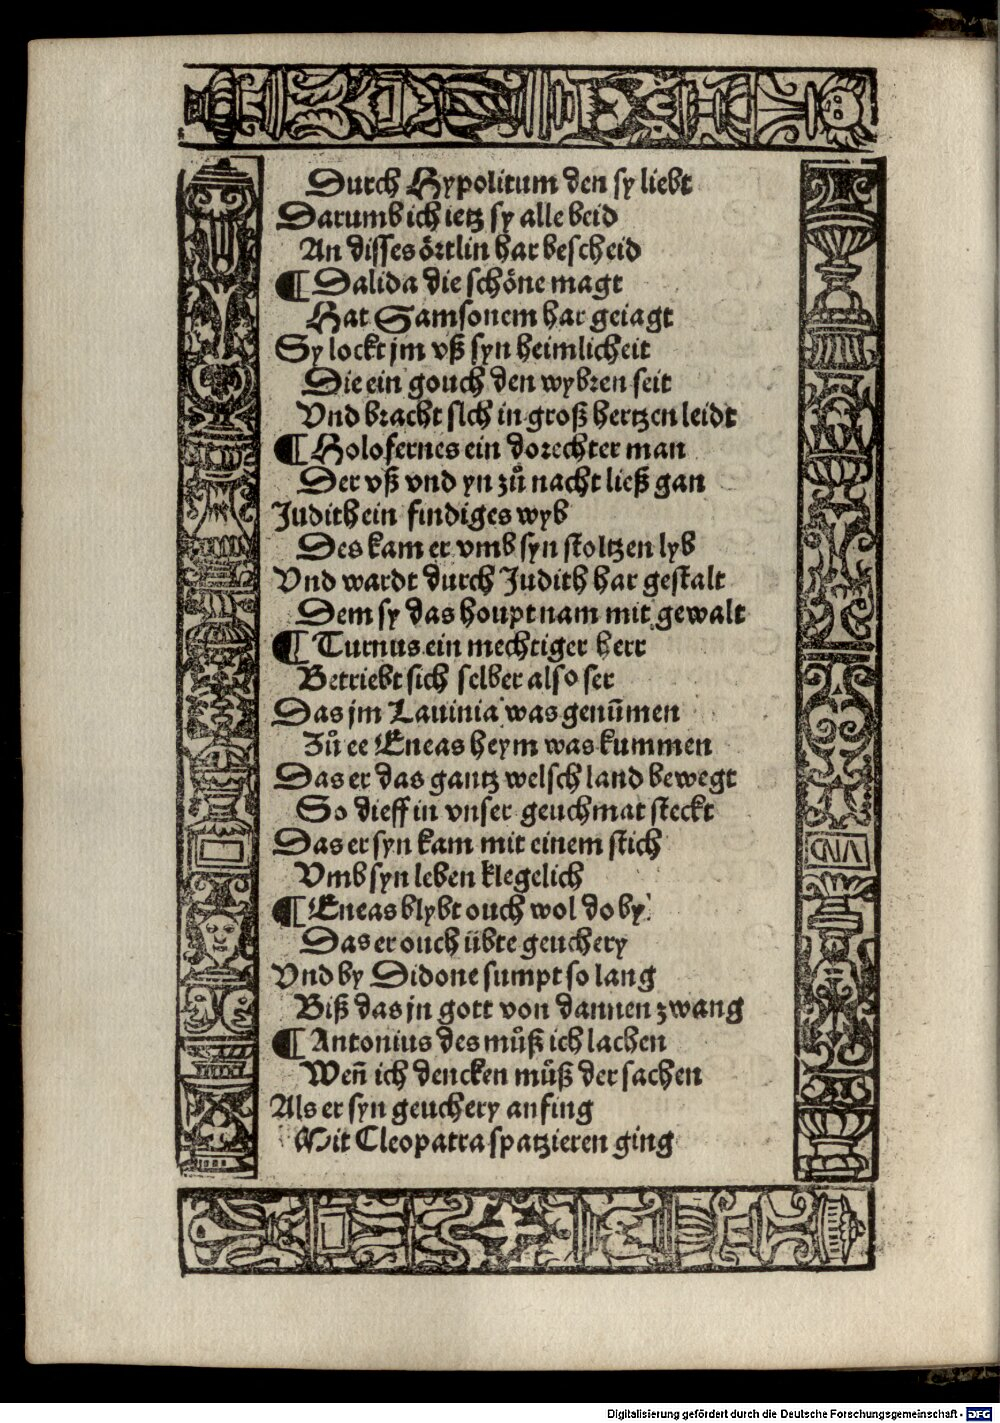 Durch Hypolitum den sy liebt
Darumb ich ietz sy alle beid
An disses örtlin har bescheid
¶ Dalida die schöne magt
Hat Samsonem har geiagt
Sy lockt jm vß syn heimlicheit
Die ein gouch den wybren seit
Vnd bracht sich in groß hertzen leidt
¶ Holofernes ein dorechter man
Der vß vnd yn zů nacht ließ gan
Judith ein findiges wyb
Des kam er vmb syn stoltzen lyb
Vnd wardt durch Judith har gestalt
Dem sy das houpt nam mit gewalt
¶ Turnus ein mechtiger herr
Betriebt sich selber also ser
Das jm Lauinia was genūmen
Zů ee Eneas heym was kummen
Das er das gantz welsch land bewegt
So dieff in vnser geuchmat steckt
Das er syn kam mit einem stich
Vmb syn leben klegelich
¶ Eneas blybt ouch wol do by
Das er ouch übte geuchery
Vnd by Didone sumpt so lang
Biß das jn gott von dannen zwang
¶ Antonius des můß ich lachen
Weñ ich dencken můß der sachen
Als er syn geuchery anfing
Mit Cleopatra spatzieren ging
Digitalisierung gefördert durch die Deutsche Forschungsgemeinschaft - DFG